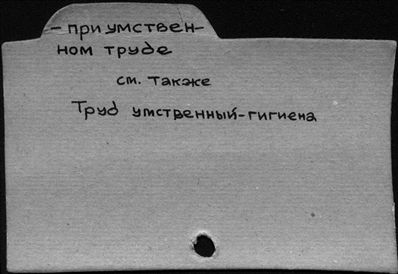 – при умствен-
ном труде
см. также
Труд умственный-гигиена